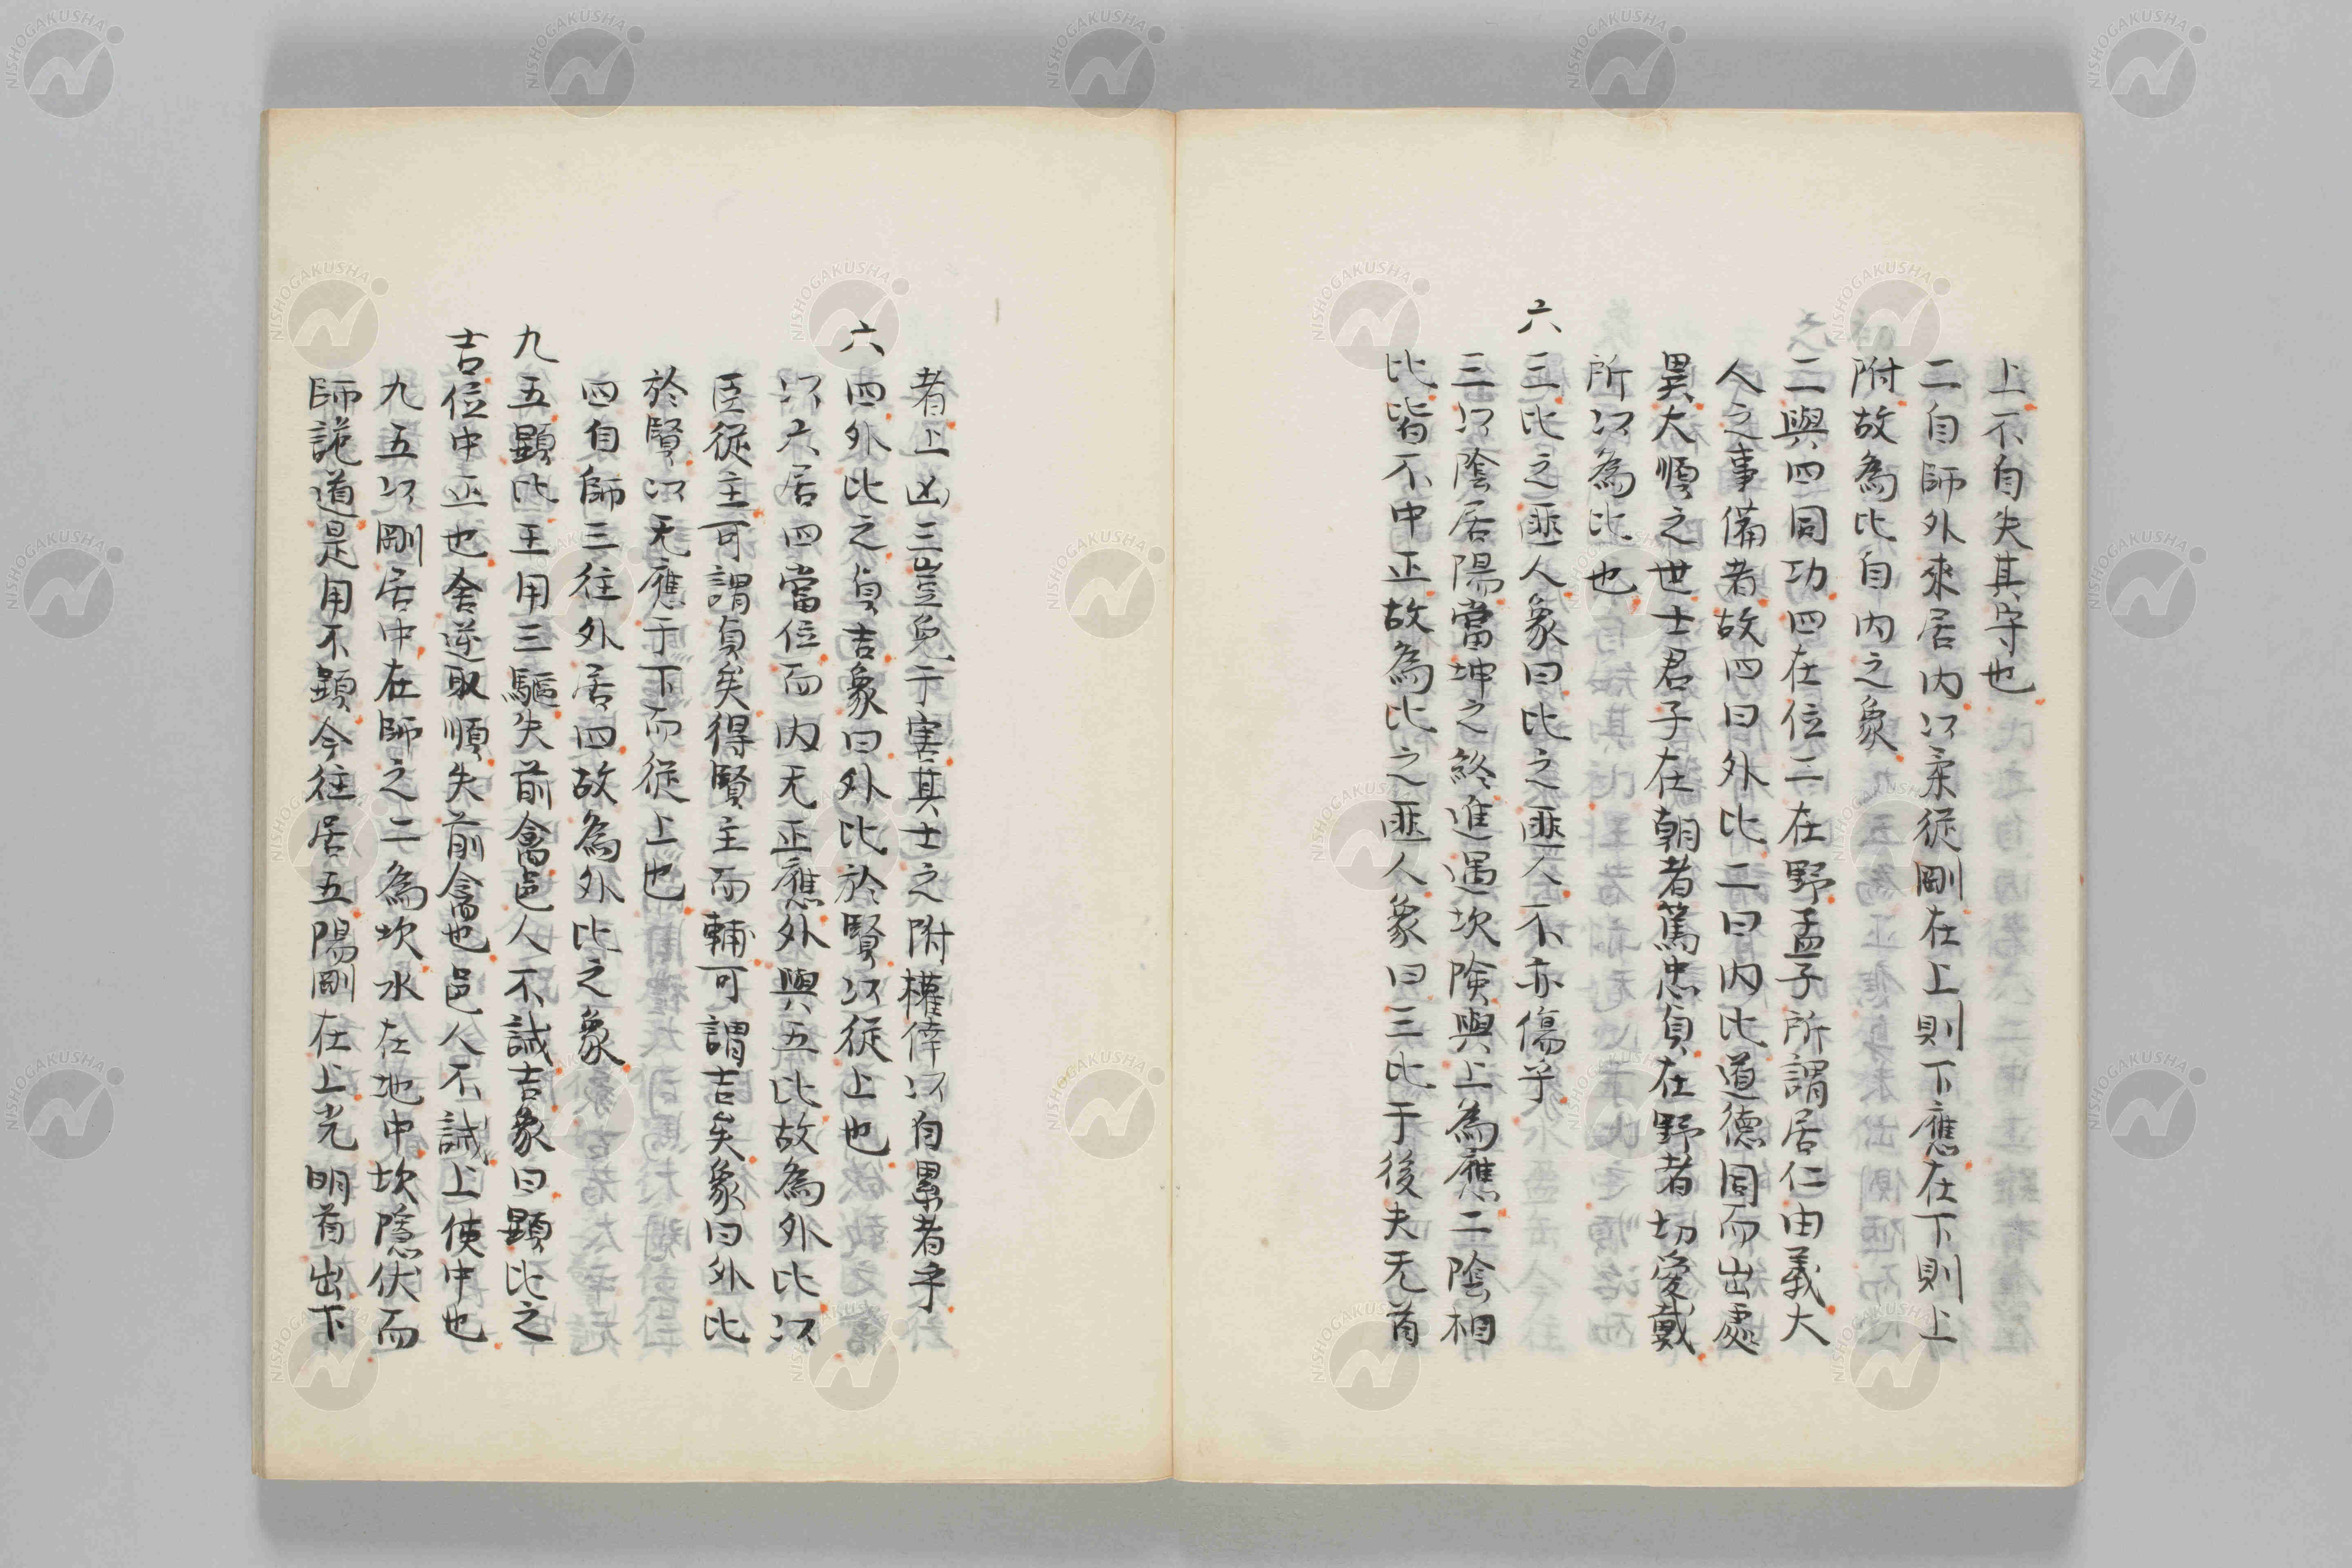 上不自失其守也
二自師外來居内以柔從剛在上則下應在下則上
附故為比自内之象
二與四同功四在位二在野孟子所謂居仁由義大
人之事備者故四曰外比二曰内比道德同而出處
異大順之世士君子在朝者篤忠貞在野者切愛戴
所以為比也
六三比之匪人象曰比之匪人不亦傷乎
三以陰居陽當坤之終進遇坎険與上為應二陰相
比皆不中正故為比之匪人象曰三比于後夫无首
者上凶三豈免于害其士之附權倖以自累者乎
六四外比之貞吉象曰外比於賢以從上也
以六居四當位而内无正應外與五比故為外比以
臣從主可謂貞矣得賢主而輔可謂吉矣象曰外比
於賢以无應于下而從上也
四自師三往外居四故為外比之象
九五顯比王用三驅失前禽邑人不誡吉象曰顯比之
吉位中正也舍逆取順失前禽也邑人不誡上使中也
九五以剛居中在師之二為坎水在地中坎隱伏而
師詭道是用不顯今往居五陽剛在上光明首出下
NISHOGAKUSHA